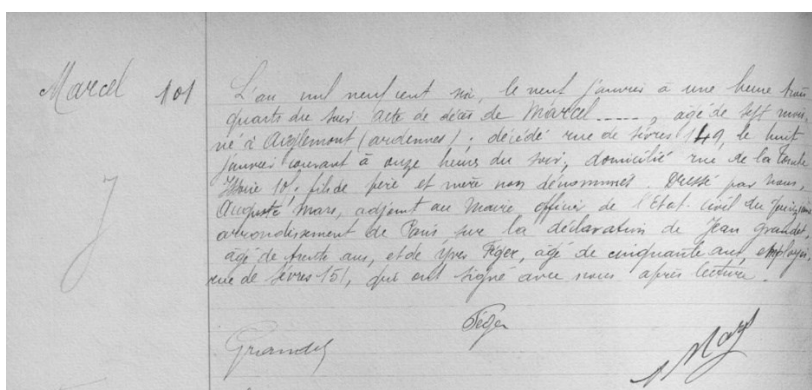 Marcel 101
L'an mil neuf cent six, le neuf janvier à une heure trois
quarts du soir acte de décès de Marcel ....., âgé de sept mois,
né à Aiglemont (ardennes); décédé rue de Sèvres 149, le huit
janvier courant à onze heures du soir, domicilié rue de la
10; fils de père et mère non dénommés. Dressé par nous,
Auguste Mars, adjoint au Maire officier de l'Etat-civil du quinzième
arrondissement de Paris, sur la déclaration de Jean Grandet,
âgé de trente ans, et de Yves Féger, âgé de cinquante ans, employés,
rue de Sèvres 151, qui ont signé avec nous après lecture.
Féger
Grandet
Mars
J